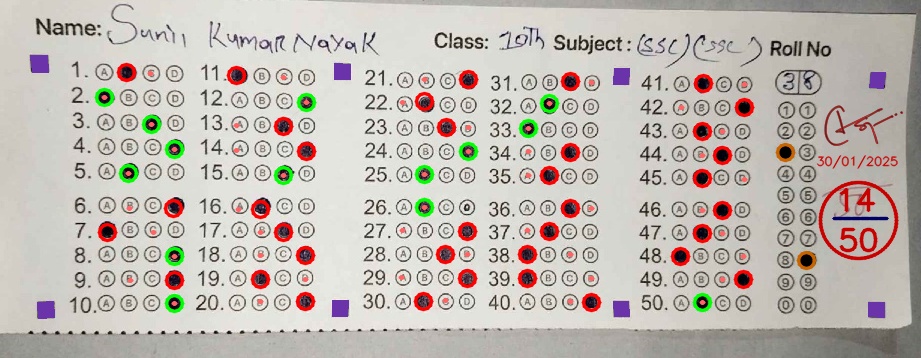 Name: Sunil Kumar Nayak Class: 10th Subject: (SSC) (SSC) Roll No
38
1. A B C D
2. A B C D
3. A B C D
4. A B C D
5. A B C D
6. A B C D
7. A B C D
8. A B C D
9. A B C D
10. A B C D
11. A B C D
12. A B C D
13. A B C D
14. A B C D
15. A B C D
16. A B C D
17. A B C D
18. A B C D
19. A B C D
20. A B C D
21. A B C D
22. A B C D
23. A B C D
24. A B C D
25. A B C D
26. A B C D
27. A B C D
28. A B C D
29. A B C D
30. A B C D
31. A B C D
32. A B C D
33. A B C D
34. A B C D
35. A B C D
36. A B C D
37. A B C D
38. A B C D
39. A B C D
40. A B C D
41. A B C D
42. A B C D
43. A B C D
44. A B C D
45. A B C D
46. A B C D
47. A B C D
48. A B C D
49. A B C D
50. A B C D
1 1
2 2
3
4 4
5 5
6 6
7 7
8
9 9
0 0
30/01/2025
14
50